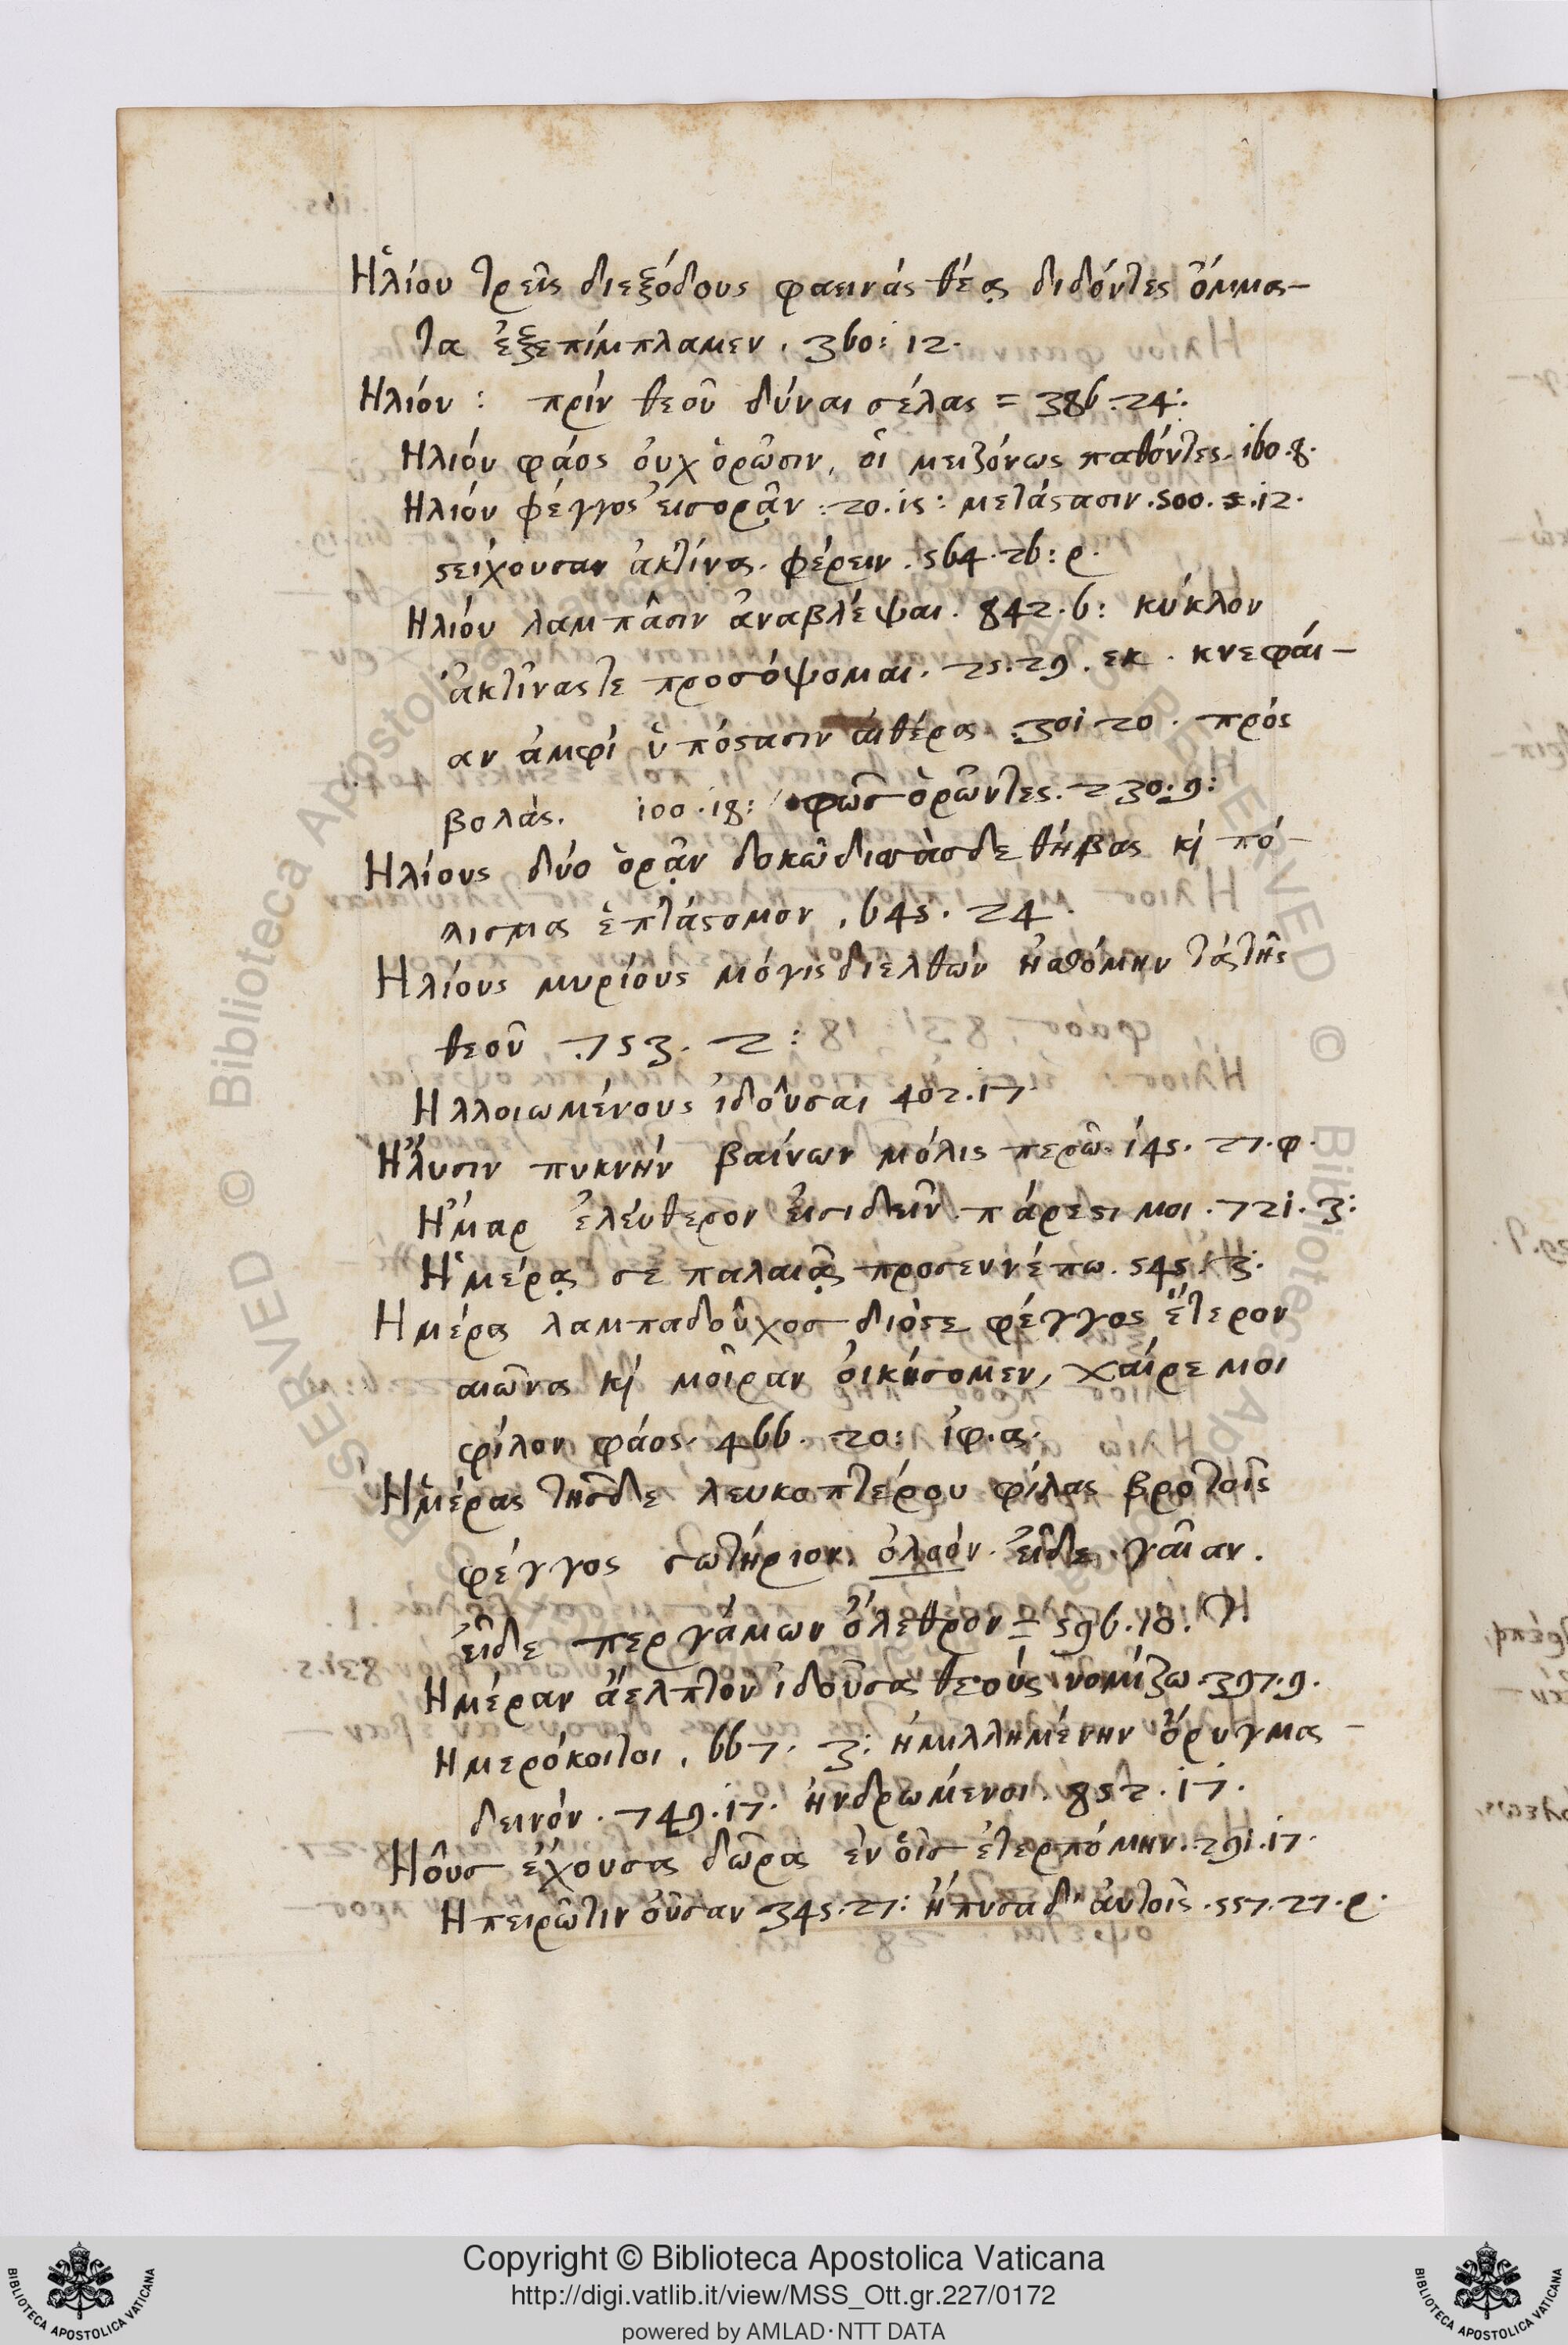 Ἡλίου τρεῖς διεξόδους φαεινάς θέᾳ διδόντες ὄμμα-
τα ἐξεπίμπλαμεν. 360: 12.
Ηλίου: πρίν θεοῦ δύναι σέλας = 386.24:
Ηλιόυ φάος ὀυχ ὁρῶσιν, ὁι μειζόνως παθόντες. 160.8.
Ηλιόυ φέγγος ἐισορᾷν: 20.15: μετάςασιν. 500. 12.
ςείχουσαν ἀκτίνα. φέρειν. 564.26: ρ.
Ηλιόυ λαμπᾶσιν ἀναβλέψαι. 842.6: κύκλον
ἀκτῖνας τε προσόψομαι. 25:29. εκ. κνεφάι-
αν ἀμφί ὑπόςασιν ἀιθέρα. 301 20. πρός
βολάς. 100.18: φῶς ὁρῶντες. 230.9:
Ηλίους δύο ὁρᾷν δοκῶ δισσὰσδε θήβας κὶ πό-
λισμα ἑπτάςομον. 645. 24.
Ηλίους μυρίους μόγις διελθών ἠσθόμην τὰ τῆς
θεοῦ. 753. 2:
Ηλλοιωμένους ἰδοῦσαι 402.17
Ἤλυσιν πυκνήν βαίνων μόλις περῶ. 145. 27.φ.
Ἦμαρ ἐλέυθερον ἐισιδεῖν πάρεςι μοι. 721. 3:
Ἡμέρᾳς σε παλαιᾷς προσεννέπω. 545. 3:
Ημέρα λαμπαδοῦχος διός τε φέγγος ἕτερον
αιῶνα κὶ μοῖραν ὀικήσομεν, χαίρε μοι
φίλον φάος. 466. 20: ἰφ.α.
Ἡμέρας τῆσδε λευκοπτέρου φίλας βροτοῖς
φέγγος σωτήριον. ὀλοόν. ἐῖδε γαῖαν.
ἐῖδε περγάμων ὄλεθρον = 596.18.
Ημέραν ἄελπτον ἰδοῦσα θεούς νομίζω. 397.9.
Ημερόκοιτοι, 667. 3: ἡμιλλημένην ὄρυγμα -
δεινόν. 749.17. ἠνδρωμένοι. 852.17.
Ηοῦς ἔχουσα δῶρα ἐν ὁῖς ἐτερπόμην. 291.17.
Ηπειρῶτιν ὀῦσαν 345.27: ἤπυσα δ' ἀυτοῖς. 557.27.ρ.
Copyright © Biblioteca Apostolica Vaticana
http://digi.vatlib.it/view/MSS_Ott.gr.227/0172
powered by AMLAD·NTT DATA
BIBLIOTECA APOSTOLICA VATICANA
BIBLIOTECA APOSTOLICA VATICANA